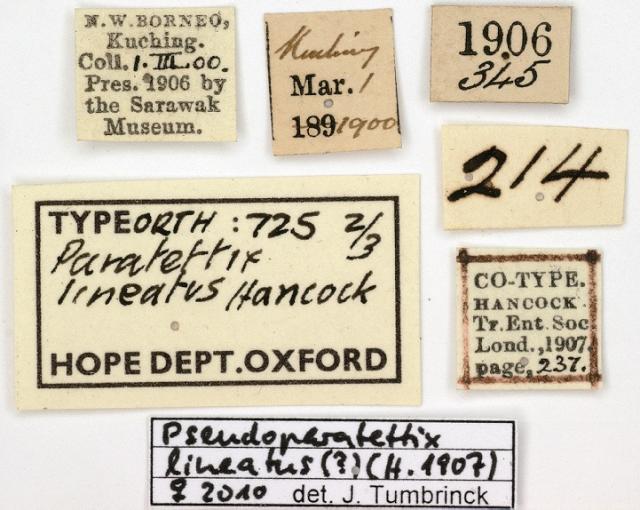 N.W. BORNEO,
Kuching.
Coll. 1. III. 00.
Pres. 1906 by
the Sarawak
Museum.
Kuching
Mar. 1
189 1900
1906
345
214
TYPE ORTH : 725 2/3
Paratettix
lineatus Hancock
HOPE DEPT. OXFORD
CO-TYPE.
HANCOCK
Tr. Ent. Soc
Lond., 1907.
page, 237.
Pseudoparatettix
lineatus (?) (H. 1907)
♀ 2010 det. J. Tumbrinck